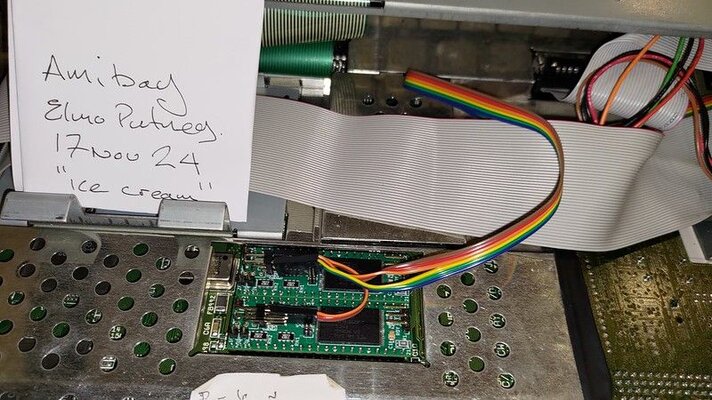 Amibay
Elmo Putney.
17 Nov 24
"Ice cream"